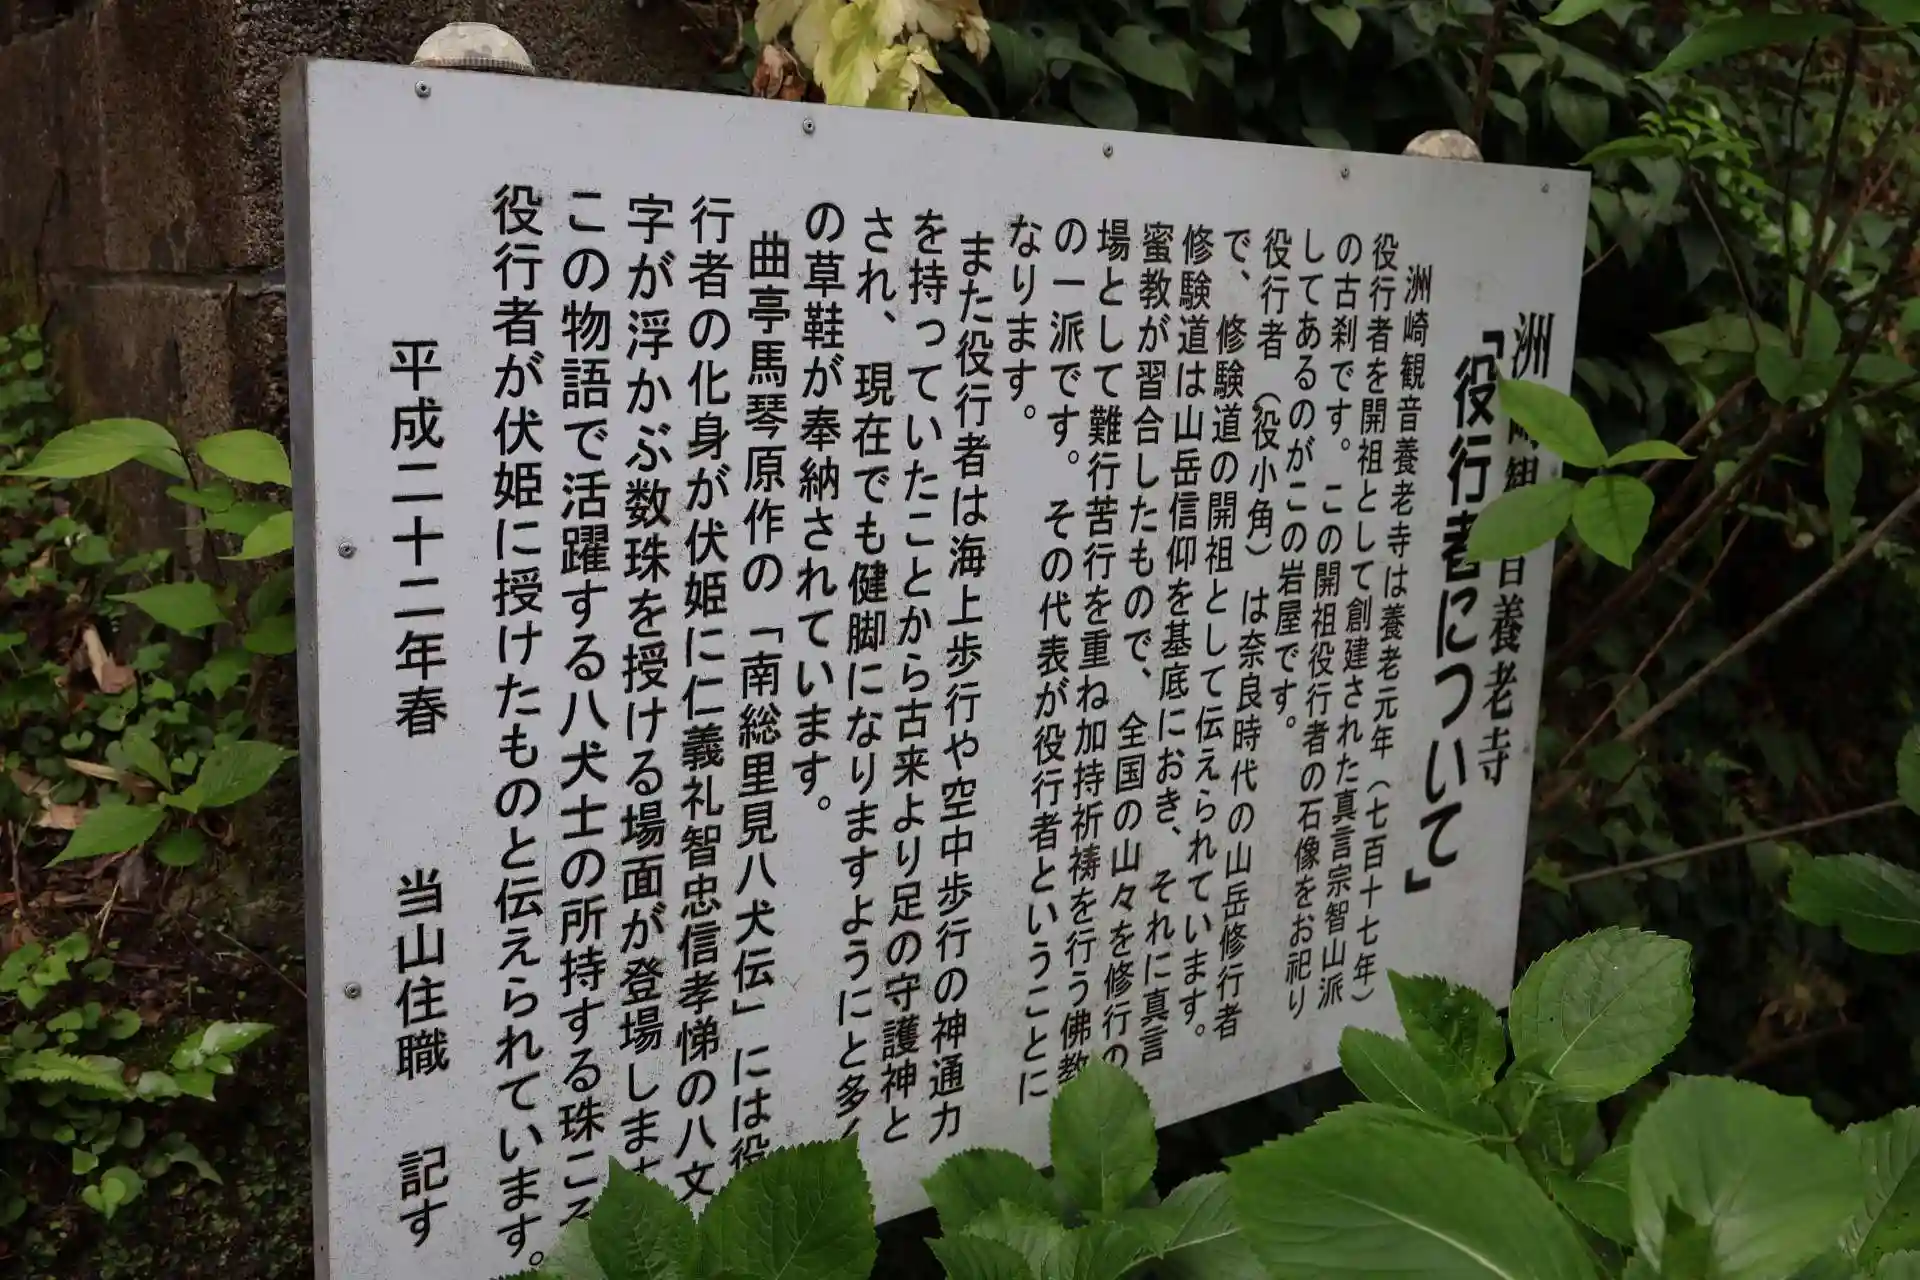 洲崎観音養老寺
「役行者について」
洲崎観音養老寺は養老元年（七百十七年）
役行者を開祖として創建された真言宗智山派
の古刹です。この開祖役行者の石像をお祀り
してあるのがこの岩屋です。
役行者（役小角）は奈良時代の山岳修行者
で、修験道の開祖として伝えられています。
修験道は山岳信仰を基底におき、それに真言
蜜教が習合したもので、全国の山々を修行の
場として難行苦行を重ね加持祈祷を行う佛教
の一派です。その代表が役行者ということに
なります。
また役行者は海上歩行や空中歩行の神通力
を持っていたことから古来より足の守護神と
され、現在でも健脚になりますようにと多く
の草鞋が奉納されています。
曲亭馬琴原作の「南総里見八犬伝」には役
行者の化身が伏姫に仁義礼智忠信孝悌の八文
字が浮かぶ数珠を授ける場面が登場します
この物語で活躍する八犬士の所持する珠こそ
役行者が伏姫に授けたものと伝えられています。
平成二十二年春　当山住職　記す